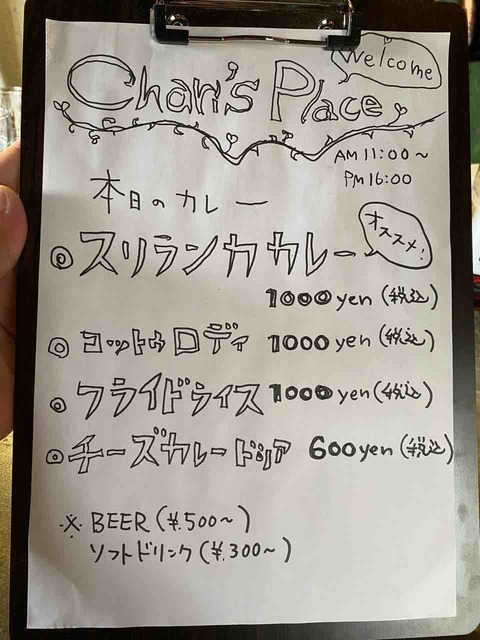 Welcome
Chan's Place
AM 11:00～
PM 16:00
本日のカレー
◎ スリランカカレー オススメ!
1000 yen (税込)
◎ コットゥロディ 1000 yen (税込)
◎ フライドライス 1000 yen (税込)
◎ チーズカレードリア 600 yen (税込)
※ BEER (¥.500～)
ソフトドリンク (¥.300～)